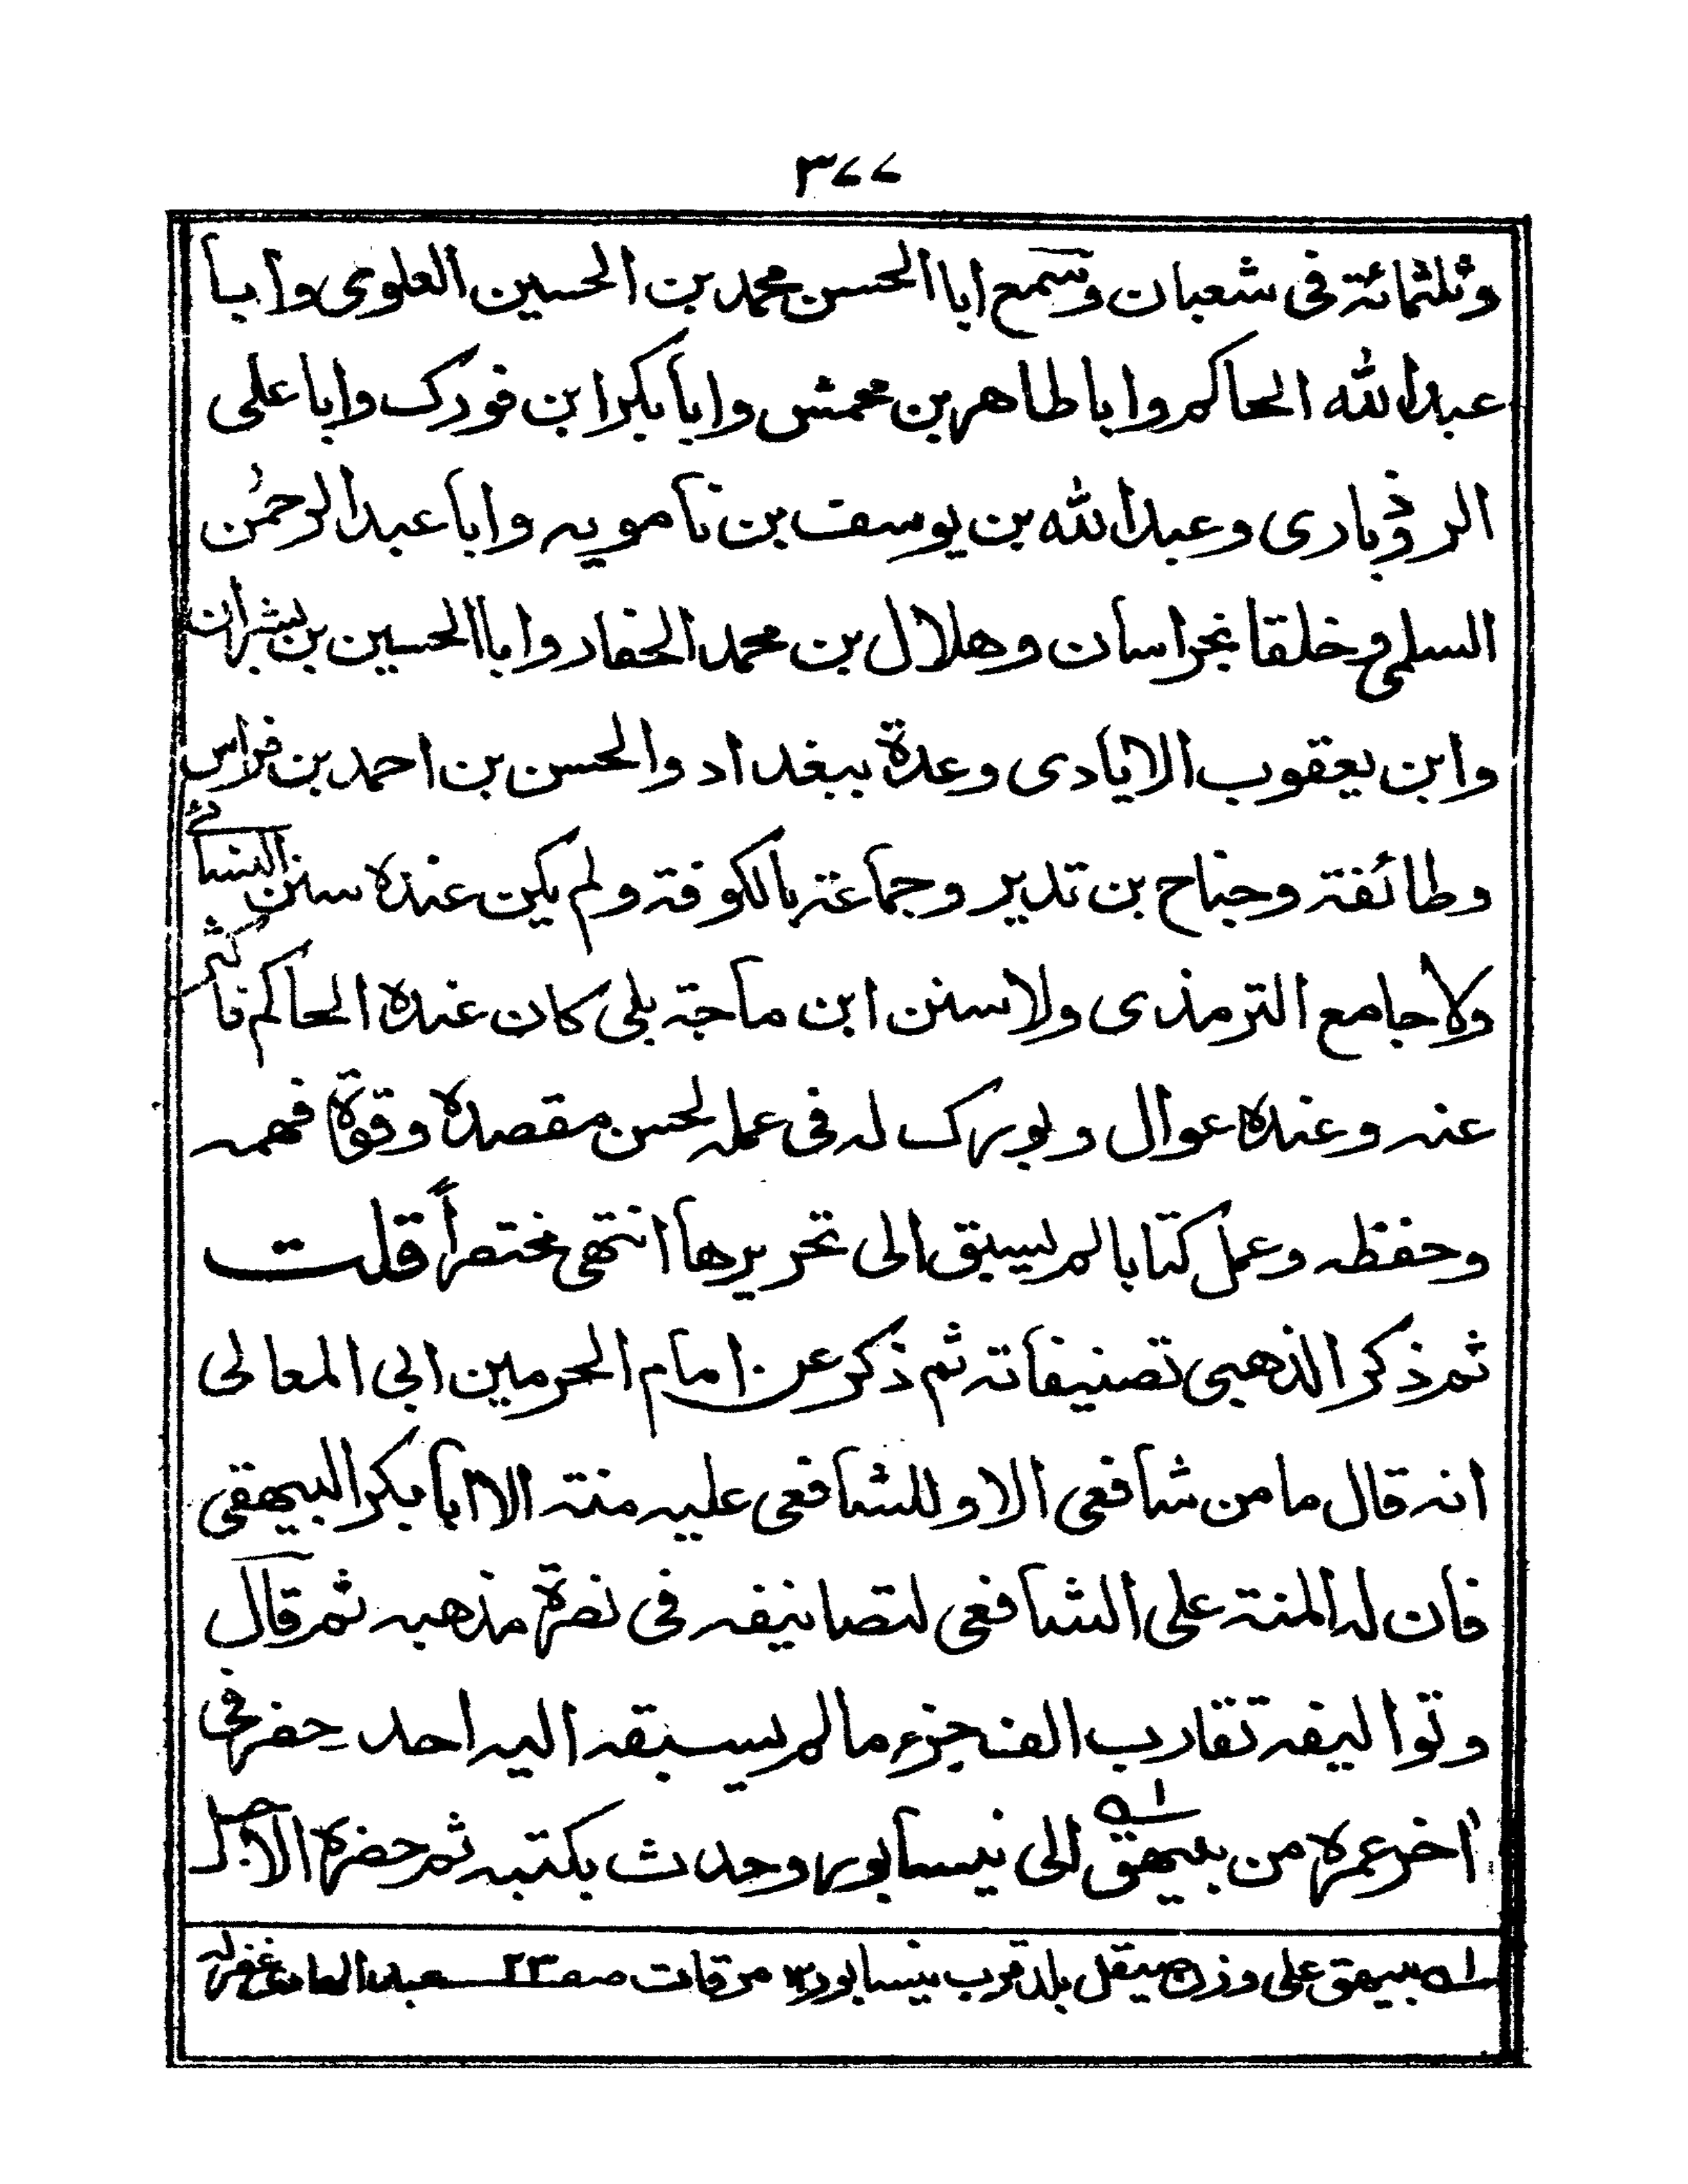 ٣٧٧
وثلثمائة في شعبان وسمع ابا الحسن محمد بن الحسين العلوى وابا
عبد الله الحاكم وابا طاهر بن محمش وابا بكر ابن فورك وابا على
الروذبارى وعبد الله بن يوسف بن نامويه وابا عبد الرحمٰن
السلمى وخلقا بخراسان وهلال بن محمد الحفار وابا الحسين بن بشران
وابن يعقوب الايادى وعدة ببغداد والحسن بن احمد بن فراس
وطائفة وجناح بن تدير وجماعة بالكوفة ولم يكن عنده سنن النسائى
ولا جامع الترمذى ولا سنن ابن ماجة بلى كان عنده الحاكم فاكثر
عنه وعنده عوال وبورك له فى عمله لحسن مقصده وقوة فهمه
وحفظه وعمل كتابا لم يسبق الى تحريرها انتهى مختصراً قلت
ثم ذكر الذهبى تصنيفاته ثم ذكر عن امام الحرمين ابى المعالى
انه قال ما من شافعى الا وللشافعى عليه منة الا ابا بكر البيهقى
فان له المنة على الشافعى لتصانيفه فى نصرة مذهبه ثم قال
وتواليفه تقارب الف جزء ما لم يسبقه اليه احد حفر فى
اخر عمره من بيهق الى نيسابور وحدث بكتبه ثم حضره الاجل
١ــه بيهق على وزن صيقل بلد قرب نيسابور ١٢ مرقات صـ ٢٣ عبد الهادى غفرله